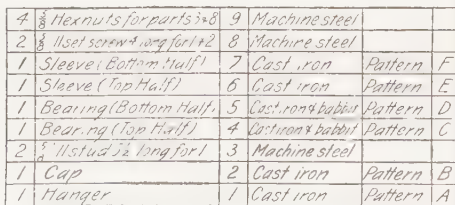 4 Hexnuts for parts 3+8 9 Machine steel
2 11 set screw 4 long for 1+2 8 Machine steel
1 Sleeve (Bottom Half) 7 Cast iron Pattern F
1 Sleeve (Top Half) 6 Cast iron Pattern E
1 Bearing (Bottom Half) 5 Cast iron & babbit Pattern D
1 Bearing (Top Half) 4 Cast iron & babbit Pattern C
2 11 stud long for 1 3 Machine steel
1 Cap 2 Cast iron Pattern B
1 Hanger 1 Cast iron Pattern A